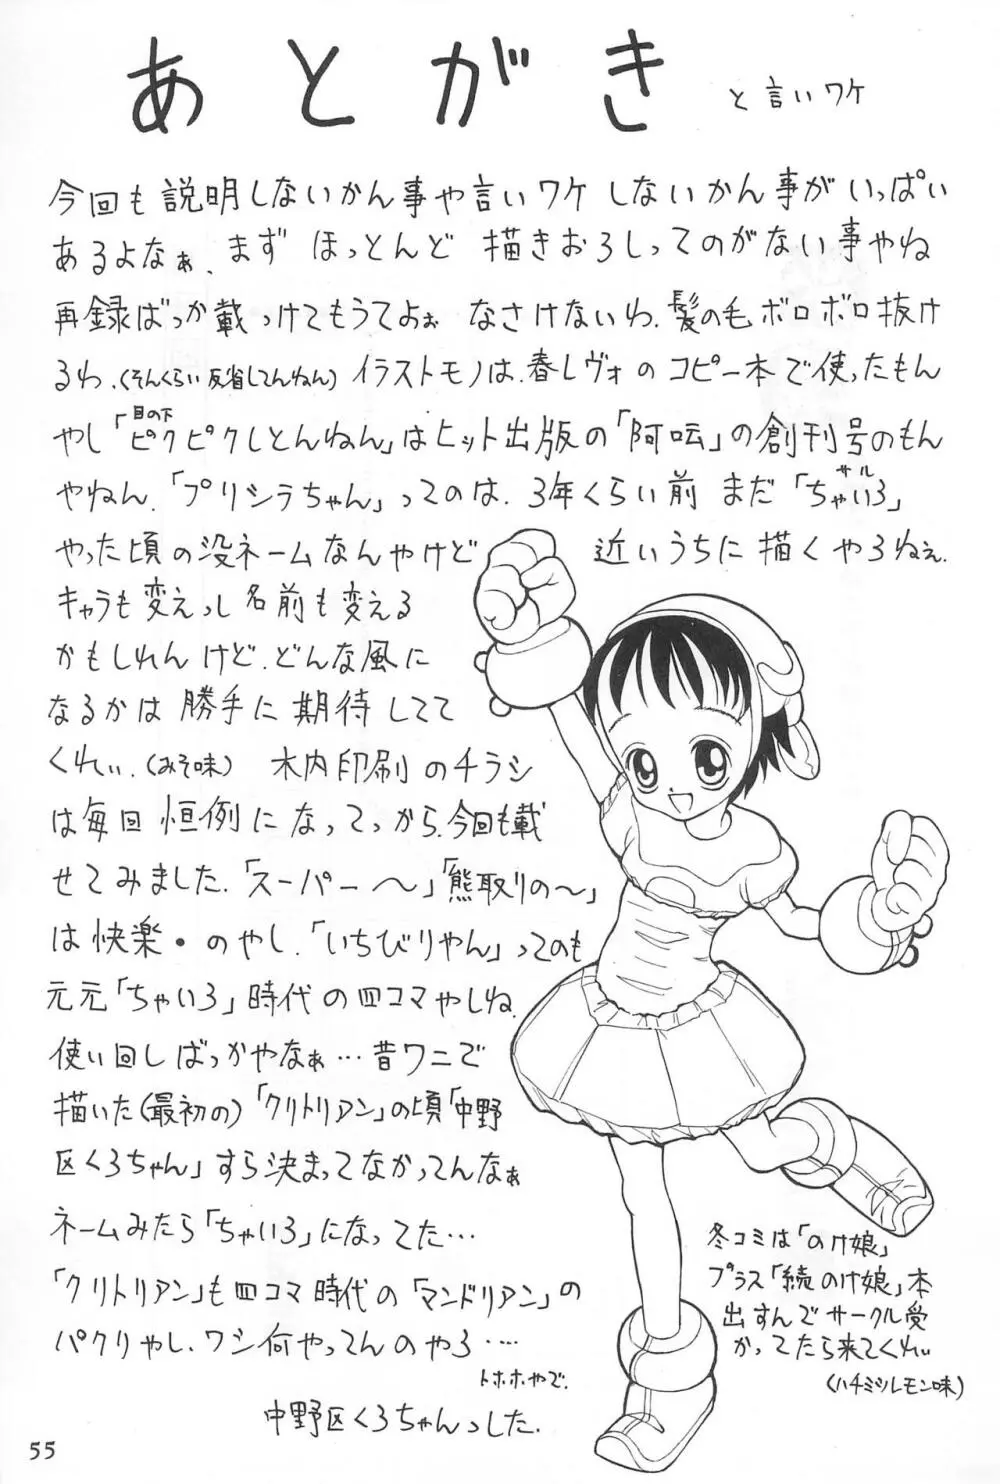 あとがき と言いワケ
今回も説明しないかん事や言いワケしないかん事がいっぱい
あるよなぁ、まず ほっとんど 描きおろしってのがない事やね
再録ばっか載っけてもうてよぉ なさけないわ、髪の毛ボロボロ抜け
るわ、(そんくらい反省してんねん) イラストモノは、春レヴォのコピー本で使ったもん
やし「目の下ピクピクしとんねん」はヒット出版の「阿吽」の創刊号のもん
やねん。「プリシラちゃん」ってのは、3年くらい前 まだ「ちゃいろ」サル
やった頃の没ネームなんやけど 近いうちに描くやろねぇ。
キャラも変えっし名前も変える
かもしれんけど、どんな風に
なるかは勝手に期待してて
くれぃ。(みそ味) 木内印刷のチラシ
は毎回恒例になってっから、今回も載
せてみました。「スーパー〜」「熊取りの〜」
は快楽・のやし、「いちびりやん」ってのも
元元「ちゃいろ」時代の四コマやしね
使い回しばっかやなぁ…昔ワニで
描いた(最初の)「クリトリアン」の頃「中野
区くろちゃん」すら決まってなかってんなぁ
ネームみたら「ちゃいろ」になってた…
「クリトリアン」も四コマ時代の「マンドリアン」の
パクリやし、ワシ何やってんのやろ…
トホホやで。
中野区くろちゃんっした。
冬コミは「のけ娘」
プラス「続のけ娘」本
出すんでサークル受
かってたら来てくれぃ
(ハチミツレモン味)
55